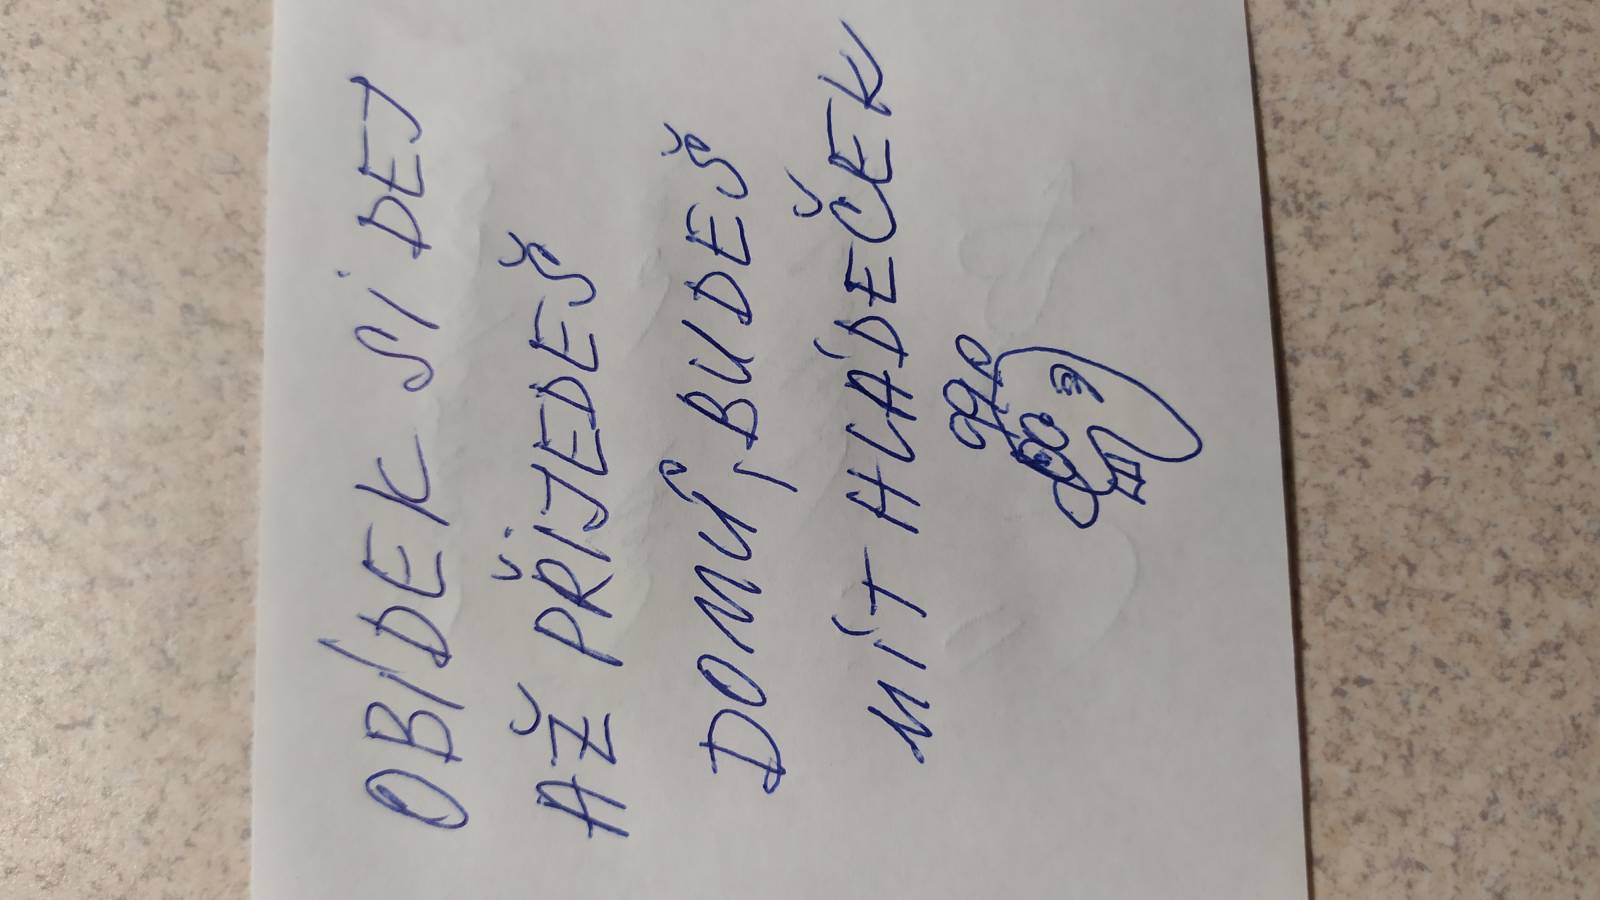 OBÍDEK SI DEJ
AŽ PŘIJEDEŠ
DOMŮ, BUDEŠ
MÍT HLÁDEČEK